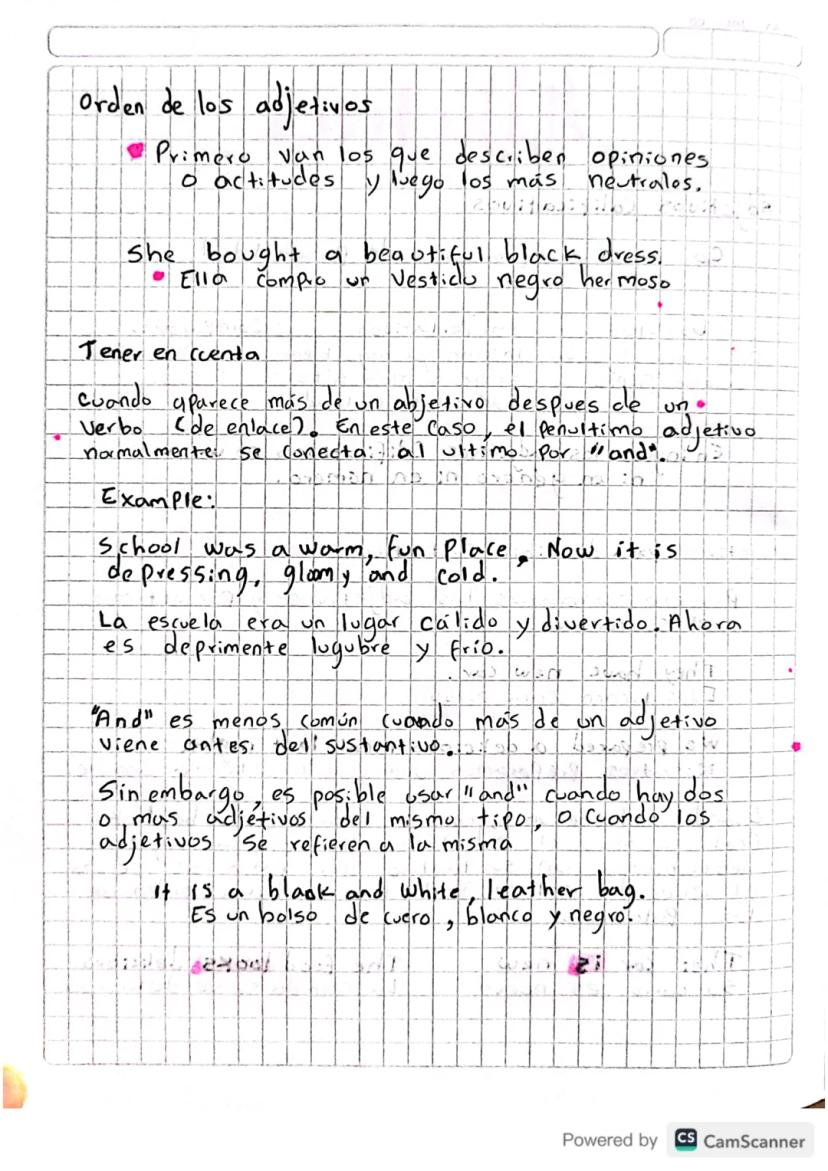 Orden de los adjetivos
Primero van los que describen opiniones
o actitudes y luego los más neutrales.
She bought a beautiful black dress.
Ella compro un vestido negro hermoso
Tener en cuenta
Cuando aparece más de un abjetivo despues de un
verbo (de enlace). En este caso, el penultimo adjetivo
normalmente se conecta al ultimo por "and".
Example:
School was a warm, fun place, Now it is
depressing, gloomy and cold.
La escuela era un lugar cálido y divertido. Ahora
es deprimente lugubre y frío.
"And" es menos común cuando más de un adjetivo
viene antes del sustantivo.
Sin embargo, es posible usar "and" cuando hay dos
o mas adjetivos del mismo tipo, o cuando los
adjetivos se refieren a la misma
It is a black and white, leather bag.
Es un bolso de cuero, blanco y negro.
Powered by CS CamScanner